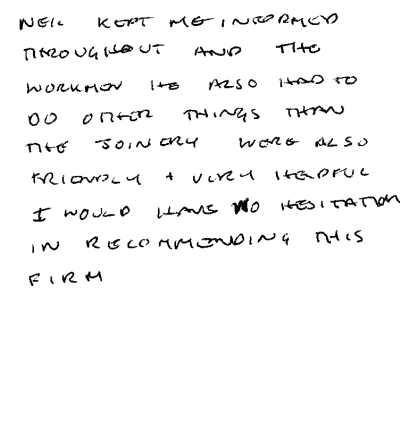 NEIL KEPT ME INFORMED
THROUGHOUT AND THE
WORKMEN HE ALSO HAD TO
DO OTHER THINGS THAN
THE JOINERY WERE ALSO
FRIENDLY + VERY HELPFUL
I WOULD HAVE NO HESITATION
IN RECOMMENDING THIS
FIRM